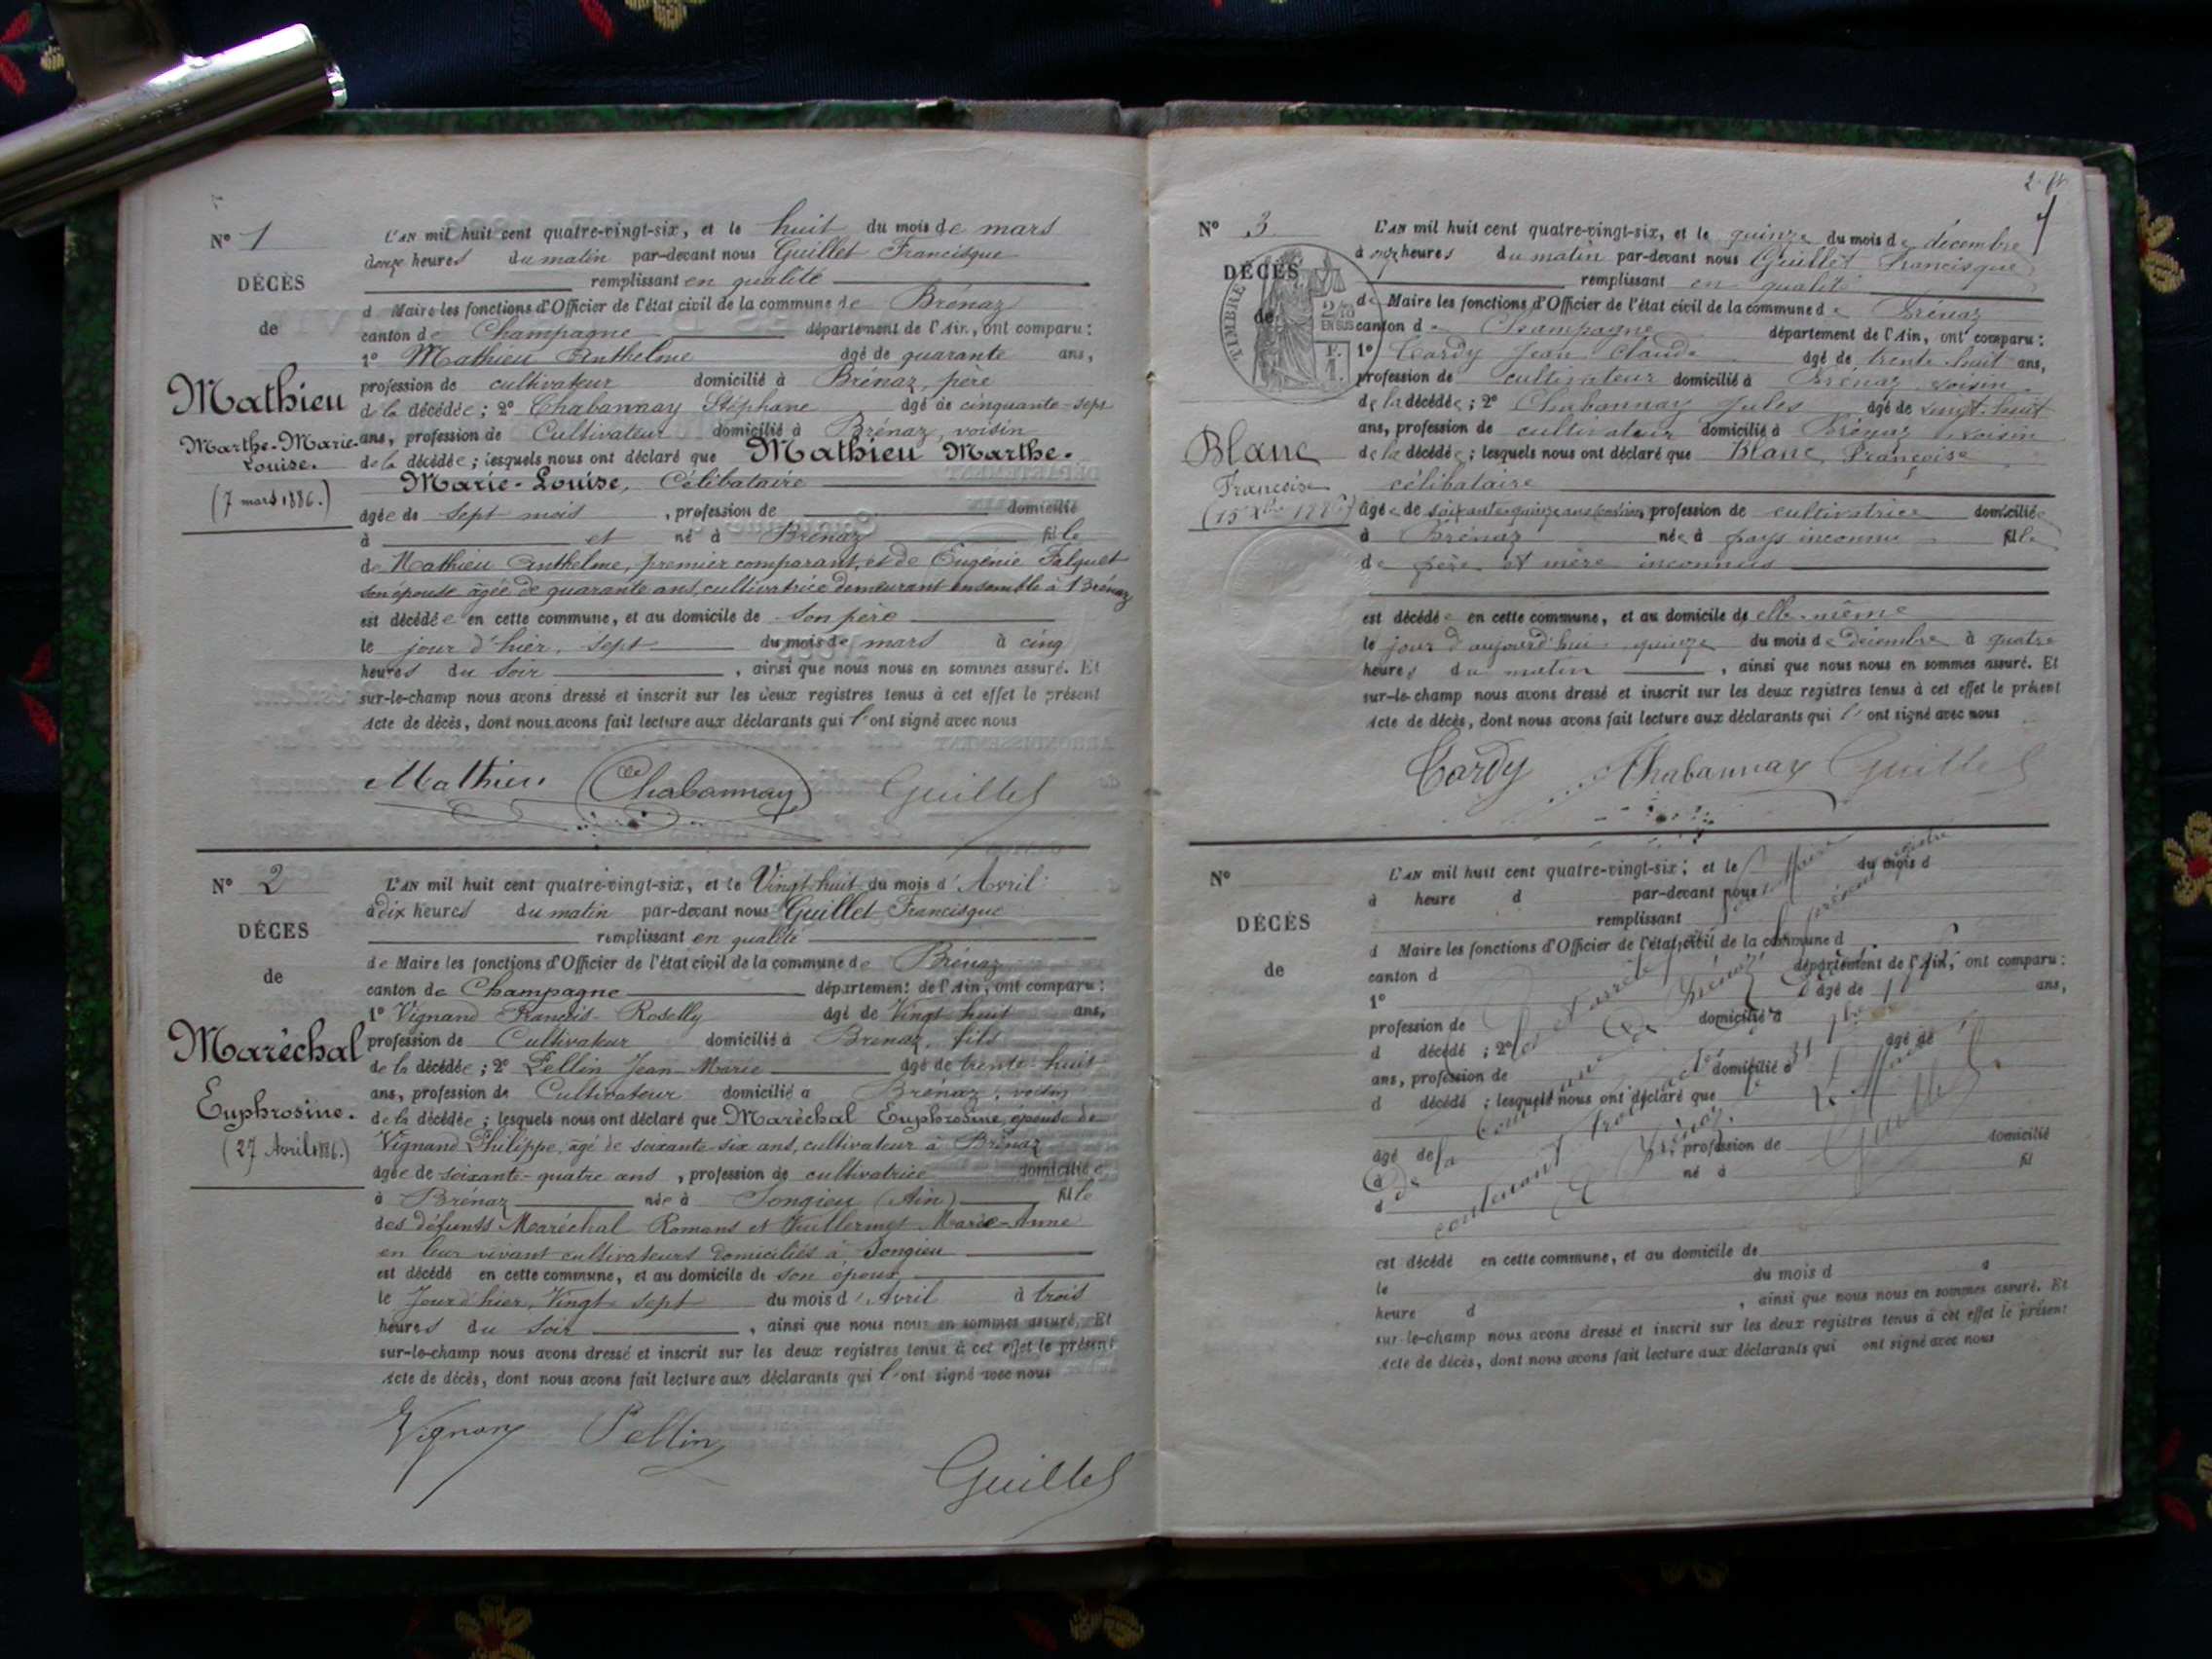 N° 1
DÉCÈS
de
Mathieu
Marthe-Marie-
Louise.
(7 mars 1886.)
L'AN mil huit cent quatre-vingt-six, et le huit du mois de mars
à onze heures du matin par-devant nous Guillet Francisque
remplissant en qualité
d Maire les fonctions d'Officier de l'état civil de la commune de Brénaz
canton de Champagne département de l'Ain, ont comparu :
1° Mathieu Anthelme âgé de quarante ans,
profession de cultivateur domicilié à Brénaz, père
de la décédée ; 2° Chabannay Stéphane âgé de cinquante-sept
ans, profession de Cultivateur domicilié à Brénaz, voisin
de la décédée ; lesquels nous ont déclaré que Mathieu Marthe-
Marie-Louise, Célibataire
âgée de sept mois , profession de domicilié
à et né à Brénaz fille
de Mathieu Anthelme, premier comparant, et de Eugénie Falquet
son épouse âgée de quarante ans, cultivatrice demeurant ensemble à Brénaz
est décédée en cette commune, et au domicile de son père
le jour d'hier, sept du mois de mars à cinq
heures du soir , ainsi que nous nous en sommes assuré. Et
sur-le-champ nous avons dressé et inscrit sur les deux registres tenus à cet effet le présent
Acte de décès, dont nous avons fait lecture aux déclarants qui l'ont signé avec nous
Mathieu Chabannay Guillet
N° 2
DÉCÈS
de
Maréchal
Euphrosine.
(27 Avril 1886.)
L'AN mil huit cent quatre-vingt-six, et le Vingt huit du mois d'Avril
à dix heures du matin par-devant nous Guillet Francisque
remplissant en qualité
de Maire les fonctions d'Officier de l'état civil de la commune de Brénaz
canton de Champagne département de l'Ain, ont comparu :
1° Vignand Francis Roselly âgé de Vingt huit ans,
profession de Cultivateur domicilié à Brenaz, fils
de la décédée ; 2° Pellin Jean-Marie âgé de trente-huit
ans, profession de Cultivateur domicilié à Brénaz, voisin
de la décédée ; lesquels nous ont déclaré que Maréchal Euphrosine, épouse de
Vignand Philippe, âgé de soixante-six ans, cultivateur à Brénaz
âgée de soixante-quatre ans , profession de cultivatrice domiciliée
à Brénaz née à Songieu (Ain) fille
des défunts Maréchal Romans et Vuillermoz Marie-Anne
en leur vivant cultivateurs domiciliés à Songieu
est décédé en cette commune, et au domicile de son époux
le Jour d'hier, Vingt sept du mois d'Avril à trois
heures du soir , ainsi que nous nous en sommes assuré. Et
sur-le-champ nous avons dressé et inscrit sur les deux registres tenus à cet effet le présent
Acte de décès, dont nous avons fait lecture aux déclarants qui l'ont signé avec nous
Vignand Pellin
Guillet
N° 3
DÉCÈS
de
TIMBRE
2/10
EN SUS
Blanc
Françoise
L'AN mil huit cent quatre-vingt-six, et le quinze du mois de décembre
à onze heures du matin par-devant nous Guillet Francisque
remplissant en qualité
de Maire les fonctions d'Officier de l'état civil de la commune de Brénaz
canton de Champagne département de l'Ain, ont comparu :
1° Cardy Jean Claude âgé de trente-huit ans,
profession de cultivateur domicilié à Brénaz voisin
de la décédée ; 2° Chabannay Jules âgé de vingt-huit
ans, profession de cultivateur domicilié à Brénaz, voisin
de la décédée ; lesquels nous ont déclaré que Blanc Françoise
célibataire
âgée de soixante quinze ans environ, profession de cultivatrice domiciliée
à Brénaz née à pays inconnu fille
de père et mère inconnus
est décédée en cette commune, et au domicile de elle-même
le jour d'aujourd'hui quinze du mois de décembre à quatre
heures du matin , ainsi que nous nous en sommes assuré. Et
sur-le-champ nous avons dressé et inscrit sur les deux registres tenus à cet effet le présent
Acte de décès, dont nous avons fait lecture aux déclarants qui l'ont signé avec nous
Cardy Chabannay Guillet
N°
DÉCÈS
de
L'AN mil huit cent quatre-vingt-six, et le du mois d
à heure d par-devant nous
remplissant
d Maire les fonctions d'Officier de l'état civil de la commune d
canton d département de l'Ain, ont comparu :
1° âgé de ans,
profession de domicilié à
d décédé ; 2° âgé de
ans, profession de domicilié à
d décédé ; lesquels nous ont déclaré que
âgé de , profession de domicilié
à né à fil
d
est décédé en cette commune, et au domicile de
le du mois d à
heure d , ainsi que nous nous en sommes assuré. Et
sur-le-champ nous avons dressé et inscrit sur les deux registres tenus à cet effet le présent
Acte de décès, dont nous avons fait lecture aux déclarants qui ont signé avec nous
présent registre
de la commune de Brénaz
contenant trois actes
Le Maire
Guillet